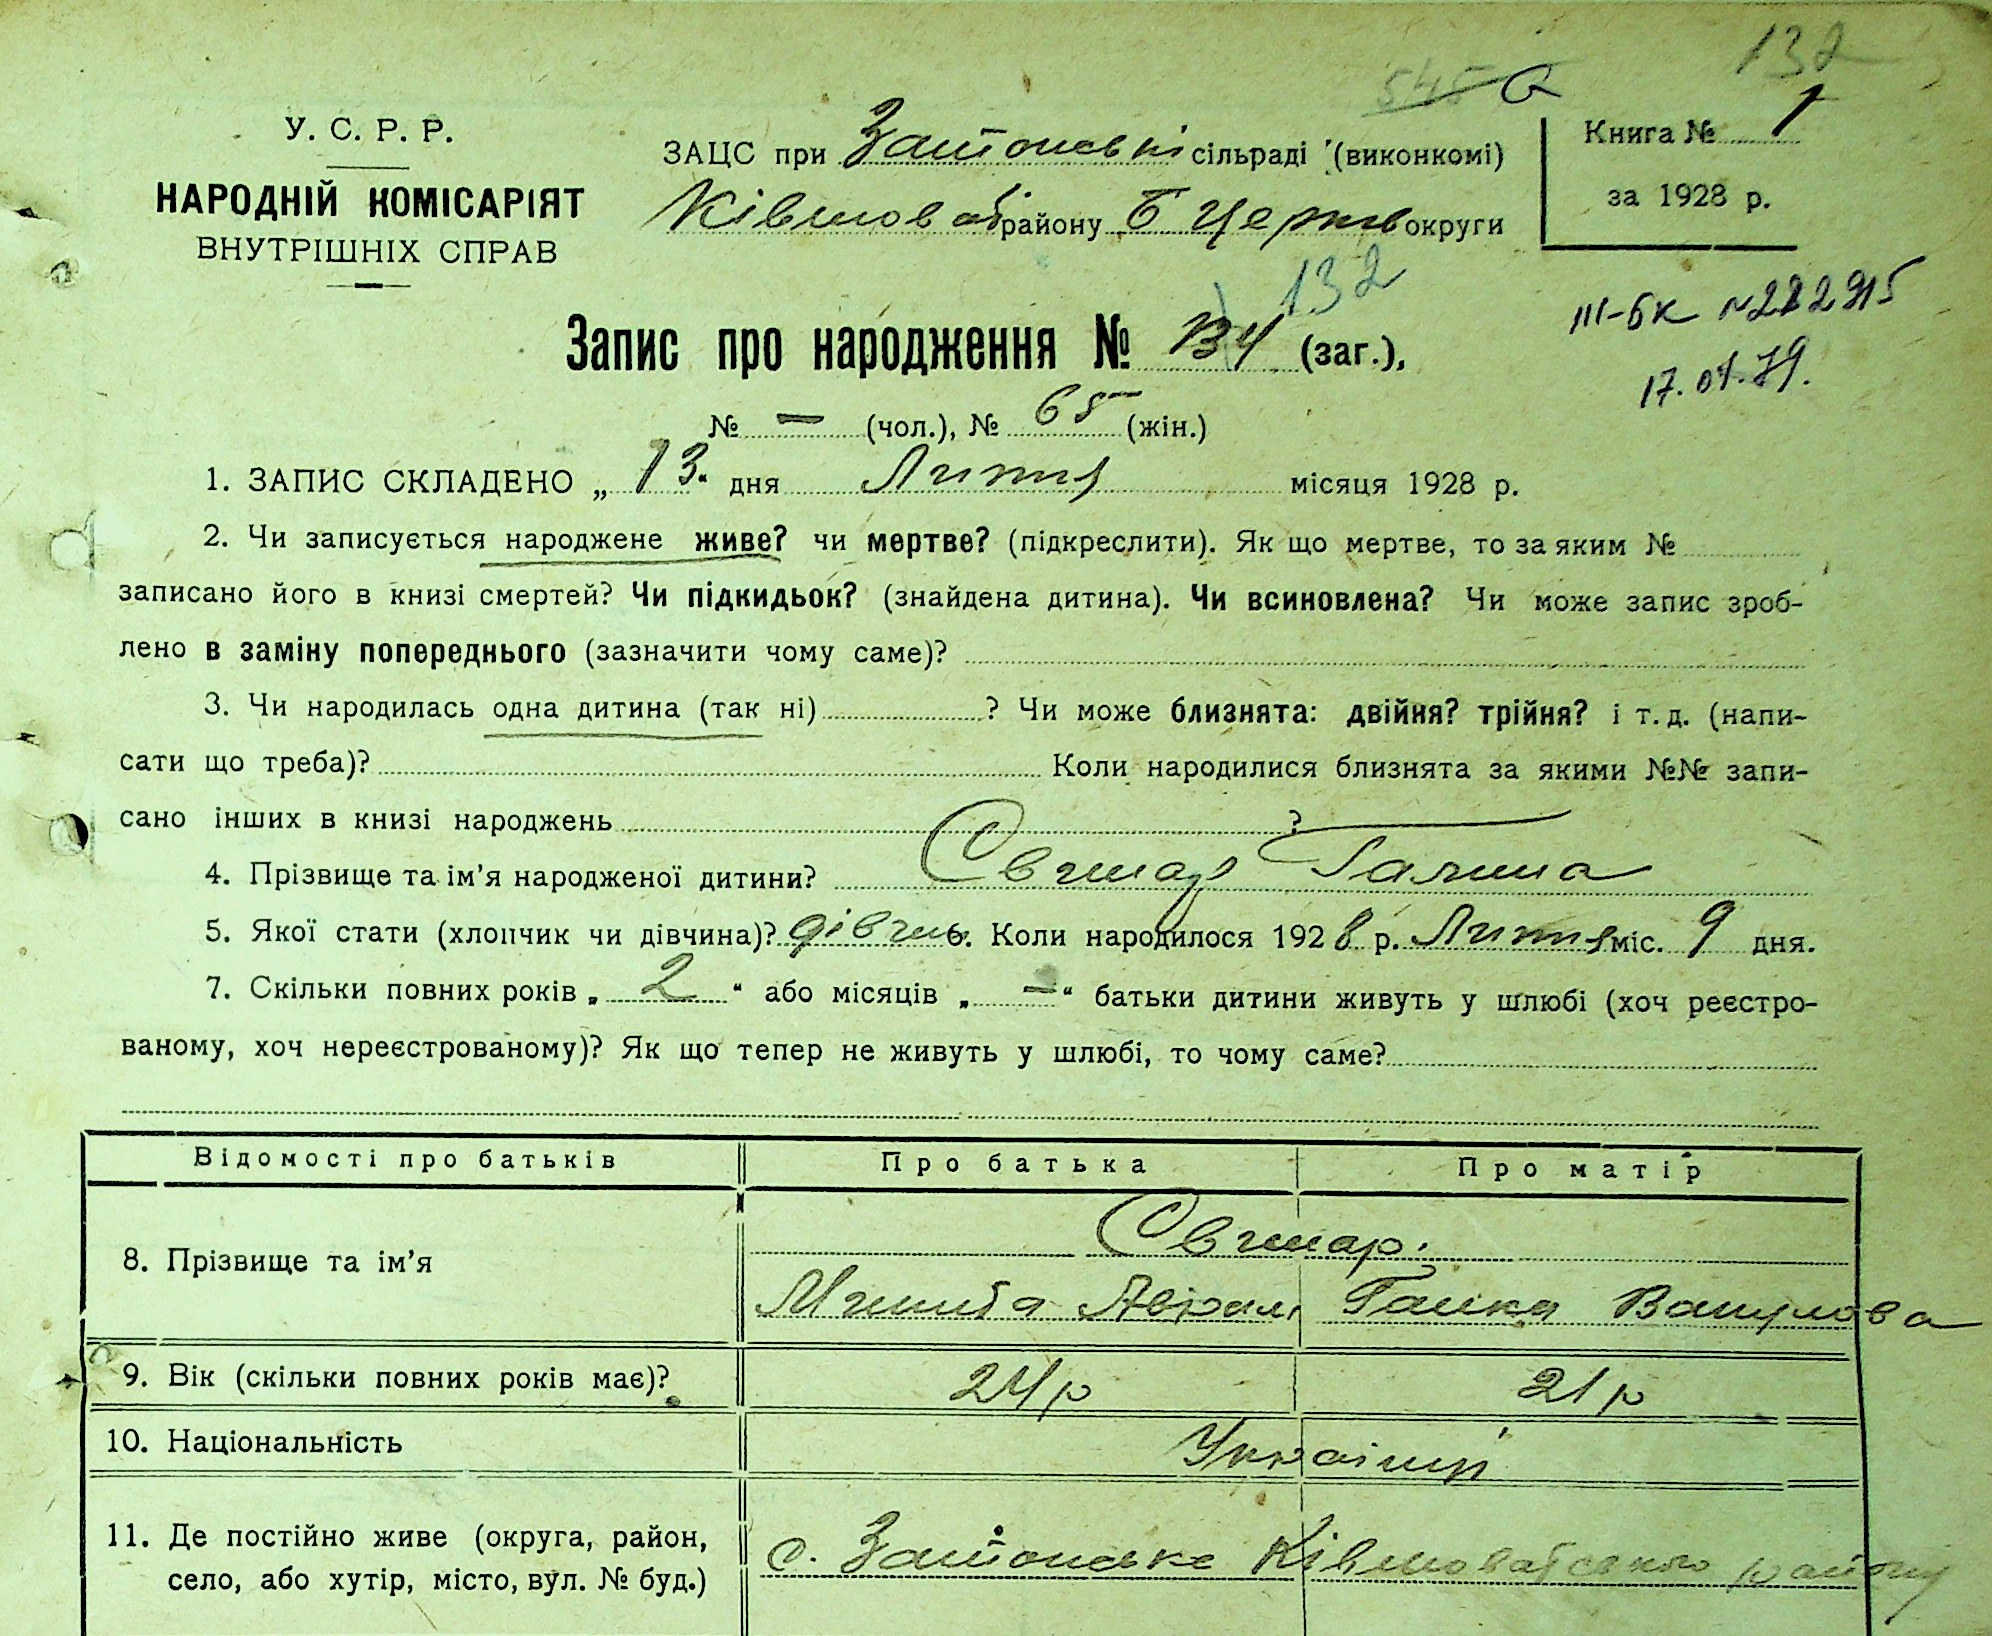 132
545
У. С. Р. Р.
НАРОДНІЙ КОМІСАРІЯТ
ВНУТРІШНІХ СПРАВ
ЗАЦС при сільраді (виконкомі)
району Б Церков округи
Книга № 1
за 1928 р.
132
Запис про народження № 134 (заг.),
ІІІ-БК
17.07.79.
№ — (чол.), № 65 (жін.)
1. ЗАПИС СКЛАДЕНО „ 13 “ дня Липня місяця 1928 р.
2. Чи записується народжене живе? чи мертве? (підкреслити). Як що мертве, то за яким №
записано його в книзі смертей? Чи підкидьок? (знайдена дитина). Чи всиновлена? Чи може запис зроб-
лено в заміну попереднього (зазначити чому саме)?
3. Чи народилась одна дитина (так ні) ? Чи може близнята: двійня? трійня? і т. д. (напи-
сати що треба)? Коли народилися близнята за якими №№ запи-
сано інших в книзі народжень ?
4. Прізвище та ім’я народженої дитини? Свинар Галина
5. Якої стати (хлопчик чи дівчина)? дівчин. Коли народилося 1928 р. Липня міс. 9 дня.
7. Скільки повних років „ 2 “ або місяців „ — “ батьки дитини живуть у шлюбі (хоч реєстро-
ваному, хоч нереєстрованому)? Як що тепер не живуть у шлюбі, то чому саме?
Відомості про батьків Про батька Про матір
Свинар.
8. Прізвище та ім’я
Микита Аврам Ганка Вакулова
9. Вік (скільки повних років має)? 24 р 21 р
10. Національність Україці
11. Де постійно живе (округа, район,
с. району
село, або хутір, місто, вул. № буд.)